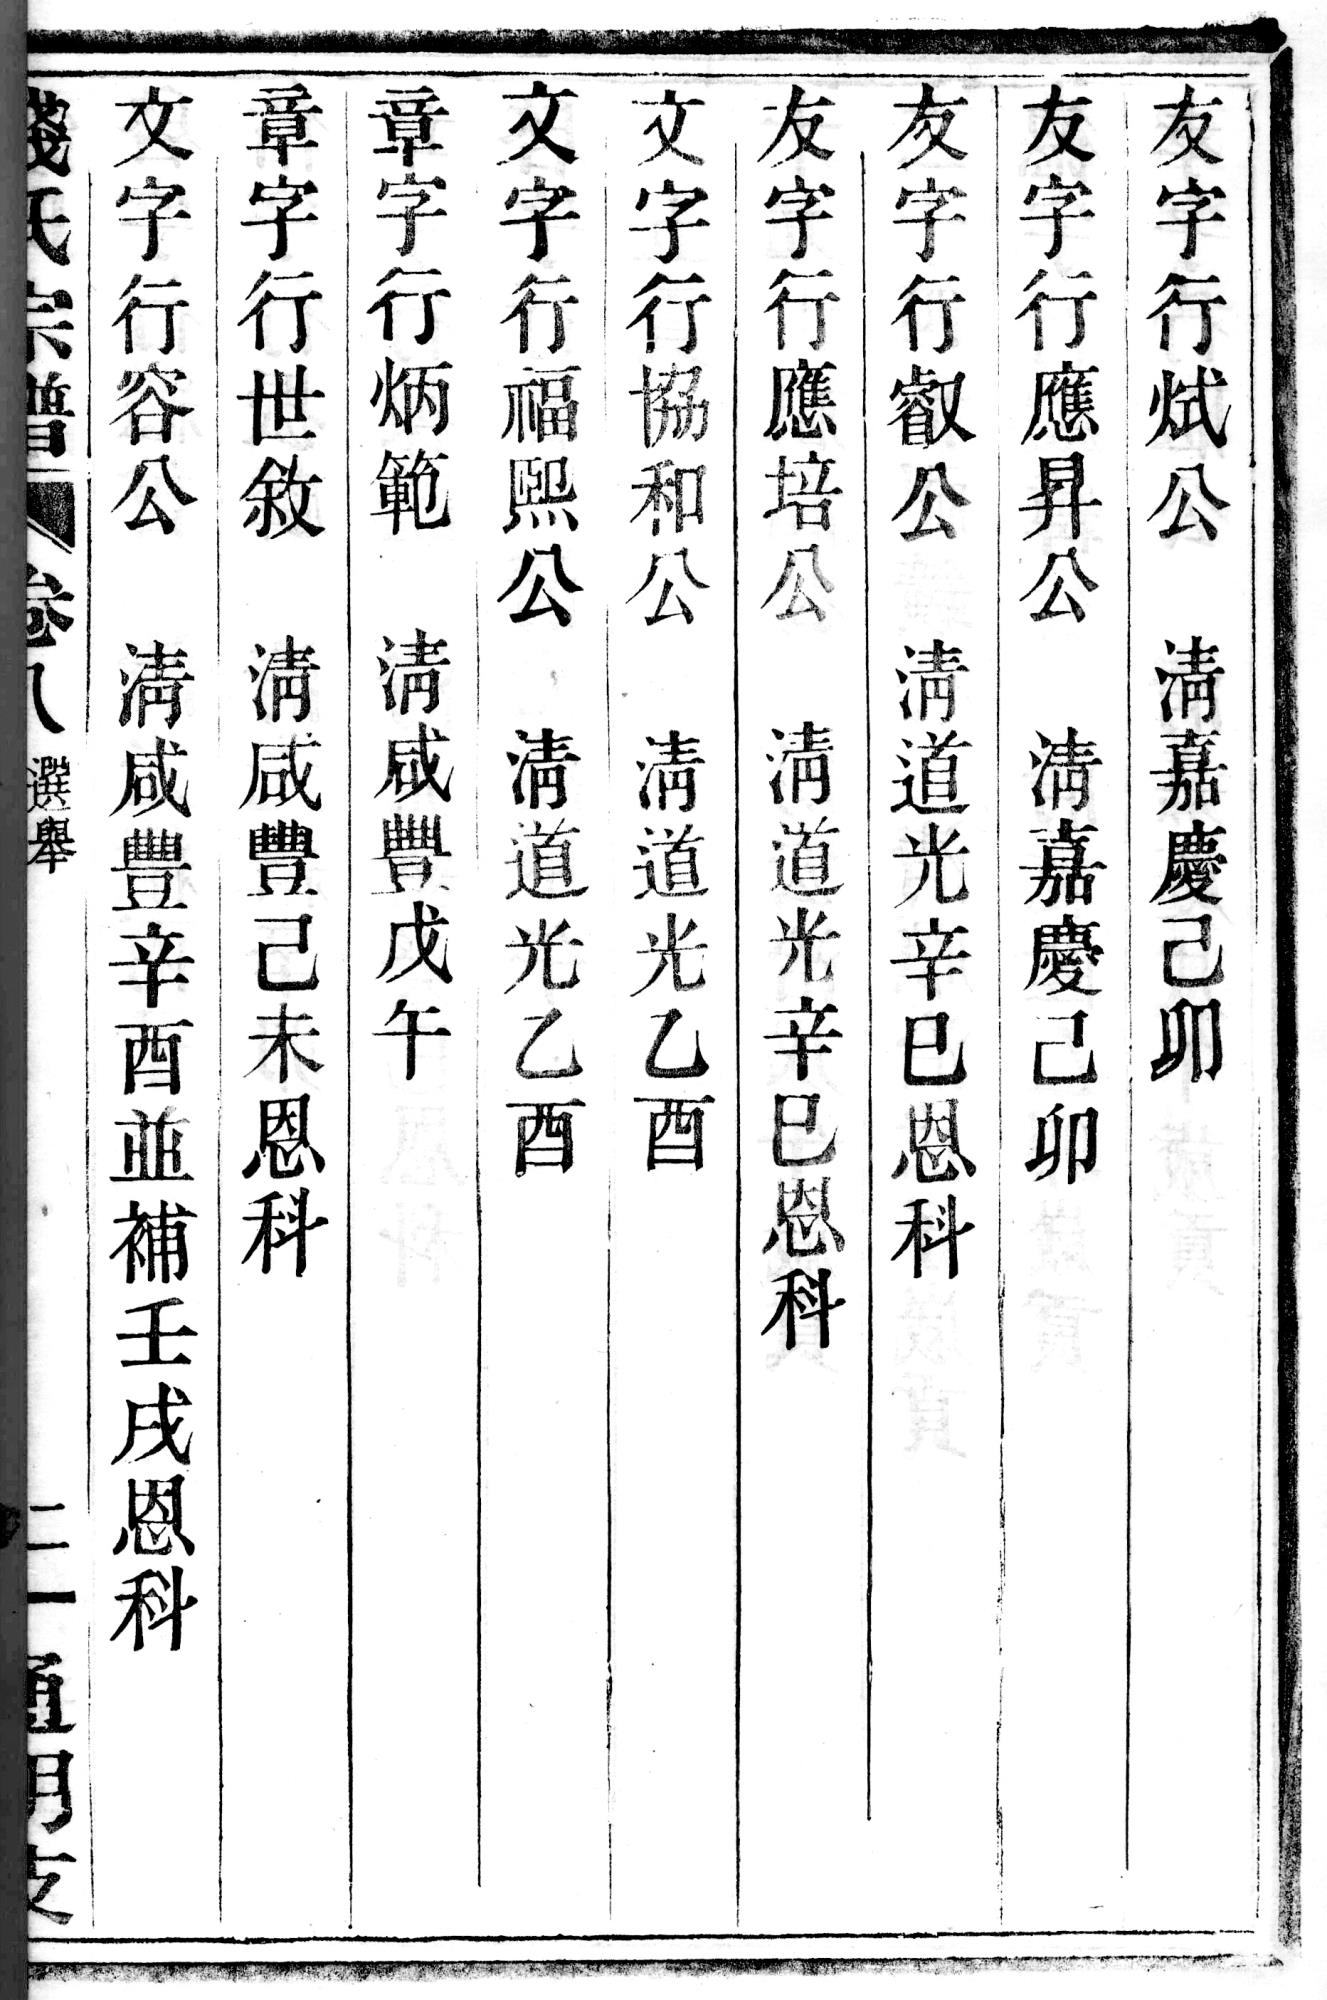 友字行烒公　清嘉慶己卯
友字行應昇公　清嘉慶己卯
友字行叡公　清道光辛巳恩科
友字行應培公　清道光辛巳恩科
文字行協和公　清道光乙酉
文字行福熙公　清道光乙酉
章字行炳範　清咸豐戊午
章字行世敘　清咸豐己未恩科
文字行容公　清咸豐辛酉並補壬戌恩科
錢氏宗譜　卷八　選舉　二一　通明支